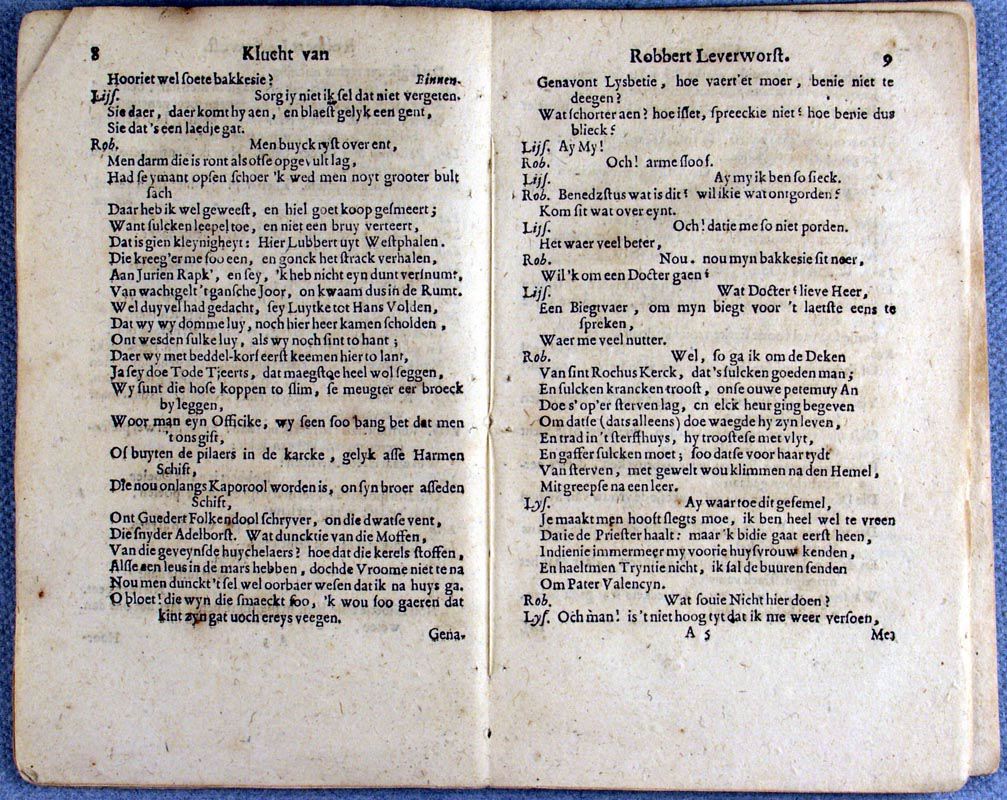 8 Klucht van
Hooriet wel soete bakkesie? Binnen.
Lijs. Sorg iy niet ik sel dat niet vergeten.
Sie daer, daer komt hy aen, en blaest gelyk een gent,
Sie dat 's een laedje gat.
Rob. Men buyck ryst over ent,
Men darm die is ront als otse opgevult lag,
Had seymant opsen schoer 'k wed men noyt grooter bult
sach
Daar heb ik wel geweest, en hiel goet koop gesmeert;
Want sulcken leepel toe, en niet een bruy verteert,
Dat is gien kleynigheyt: Hier Lubbert uyt Westphalen.
Die kreeg'er me soo een, en gonck het strack verhalen,
Aan Jurien Rapk', en sey, 'k heb nicht eyn dunt versnumt,
Van wachtgelt 't gansche Joor, on kwaam dus in de Rumt.
Wel duyvel had gedacht, sey Luytke tot Hans Volden,
Dat wy wy domme luy, noch hier heer kamen scholden,
Ont wesden sulke luy, als wy noch sint to hant;
Daer wy met beddel-korf eerst keemen hier to lant,
Ja sey doe Tode Tjeerts, dat maegstqe heel wol seggen,
Wy sunt die hose koppen to slim, se meugter eer broeck
by leggen,
Woor man eyn Officike, wy seen soo bang bet dat men
't ons gift,
Of buyten de pilaers in de karcke, gelyk asse Harmen
Schift,
Die nou onlangs Kaporool worden is, on syn broer asseden
Schift,
Ont Guedert Folkendool schryver, on die dwatse vent,
Die snyder Adelborst. Wat duncktie van die Moffen,
Van die geveynsde huychelaers? hoe dat die kerels stoffen,
Alsse een leus in de mars hebben, doch de Vroome niet te na
Nou men dunckt 't sel wel oorbaer wesen dat ik na huys ga.
O bloet! die wyn die smaeckt soo, 'k wou soo gaeren dat
kint zyn gat noch ereys veegen.
Gena-
Robbert Leverworst. 9
Genavont Lysbetie, hoe vaert'et moer, benie niet te
deegen?
Wat schorter aen? hoe isset, spreeckie niet? hoe benie dus
blieck?
Lijs. Ay My!
Rob. Och! arme sloof.
Lijs. Ay my ik ben so sieck.
Rob. Benedzstus wat is dit? wil ikie wat ontgorden?
Kom sit wat over eynt.
Lijs. Och! datje me so niet porden.
Het waer veel beter,
Rob. Nou. nou myn bakkesie sit neer,
Wil 'k om een Docter gaen?
Lijs. Wat Docter? lieve Heer,
Een Biegtvaer, om myn biegt voor 't laetste eens te
spreken,
Waer me veel nutter.
Rob. Wel, so ga ik om de Deken
Van sint Rochus Kerck, dat 's sulcken goeden man;
En sulcken krancken troost, onse ouwe petemuy An
Doe s' op'er sterven lag, en elck heur ging begeven
Om datse (dats alleens) doe waegde hy zyn leven,
En trad in 't sterfhuys, hy troostese met vlyt,
En gaffer sulcken moet; soo datse voor haar tydt
Van sterven, met gewelt wou klimmen na den Hemel,
Mit greepse na een leer.
Lys. Ay waar toe dit gefemel,
Je maakt men hooft slegts moe, ik ben heel wel te vreen
Datie de Priester haalt: maar 'k bidie gaat eerst heen,
Indienie immermeer my voorie huysvrouw kenden,
En haelt men Tryntie nicht, ik sal de buuren senden
Om Pater Valencyn.
Rob. Wat souie Nicht hier doen?
Lys. Och man! is 't niet hoog tyt dat ik me weer versoen,
A 5 Mez